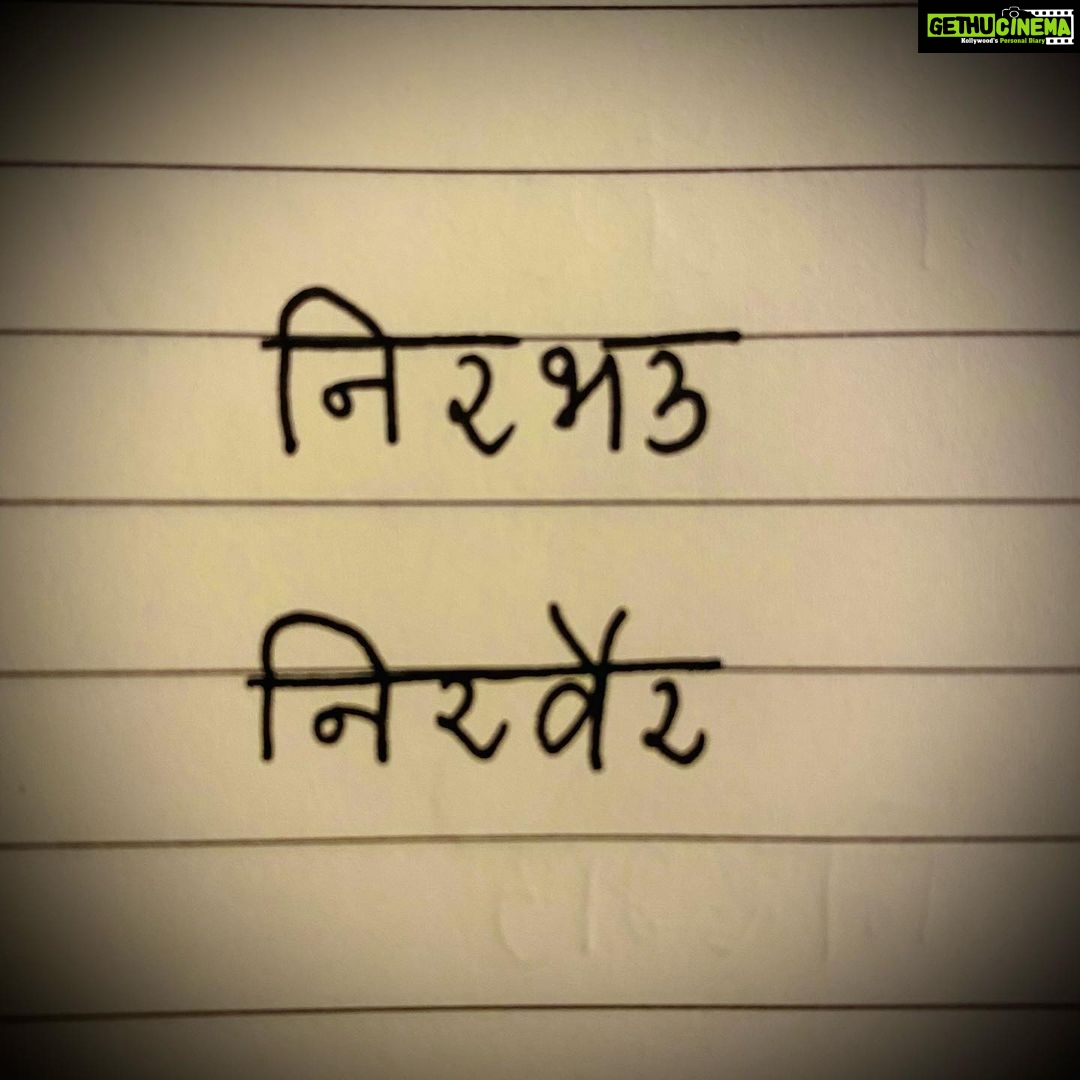 GETHU CINEMA
Kollywood's Personal Diary
निरभउ
निरवैर